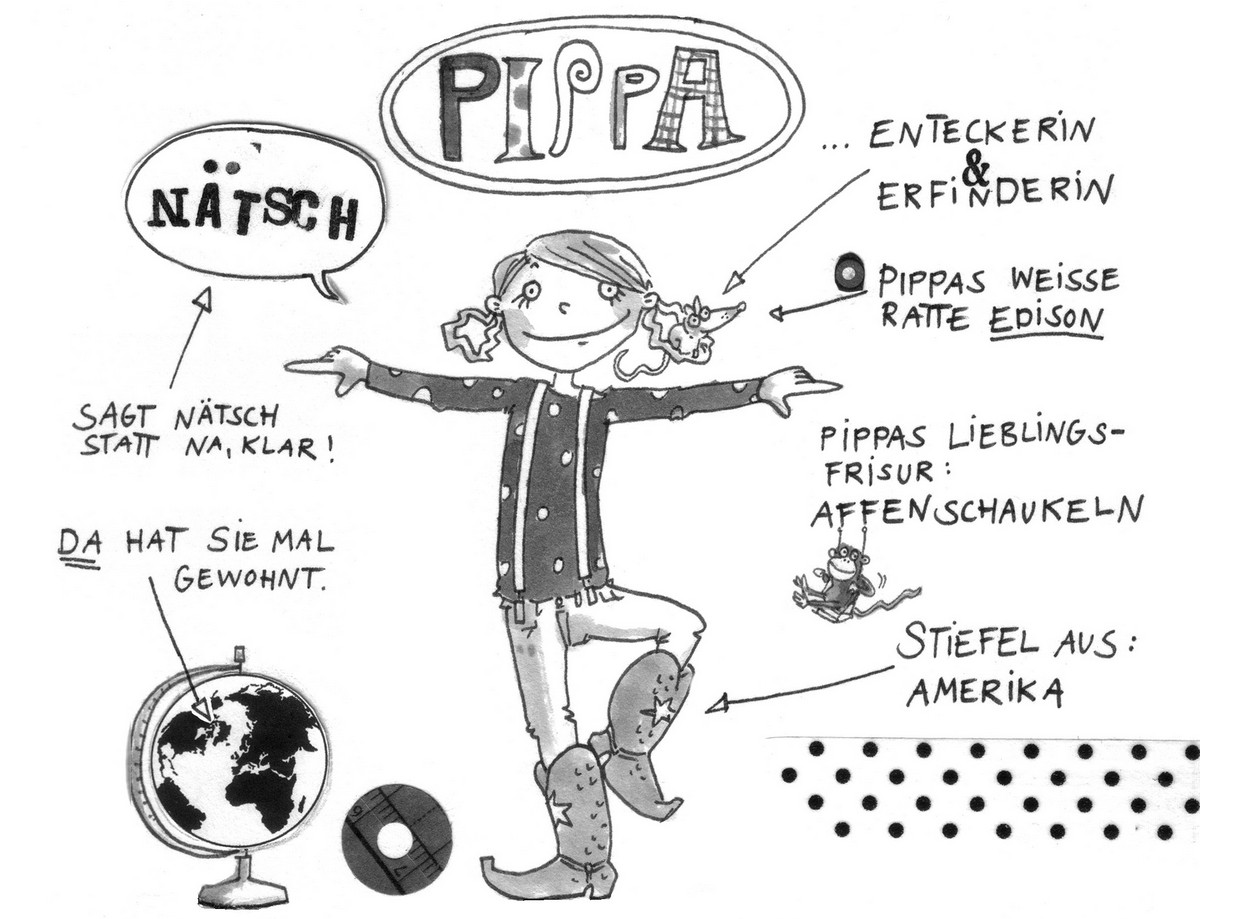 PIPPA
NÄTSCH
SAGT NÄTSCH
STATT NA, KLAR!
DA HAT SIE MAL
GEWOHNT.
... ENTECKERIN
&
ERFINDERIN
PIPPAS WEISSE
RATTE EDISON
PIPPAS LIEBLINGS-
FRISUR:
AFFENSCHAUKELN
STIEFEL AUS:
AMERIKA